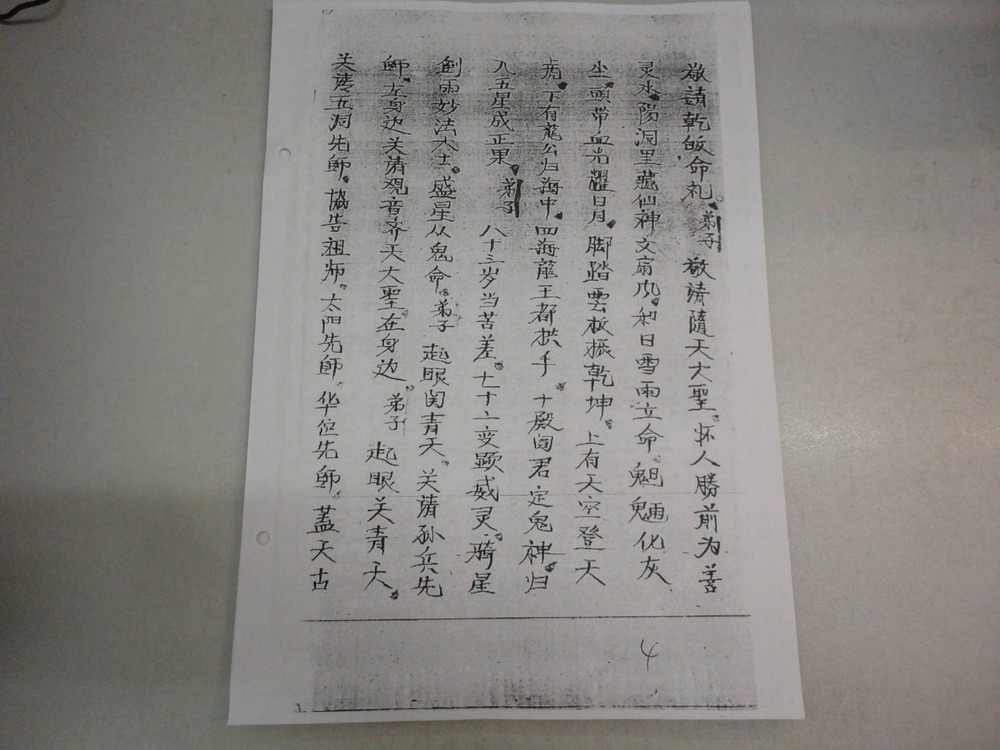 敬請乾皈命礼。弟子敬請隨天大聖。怀人勝前为善
灵水。陽洞里藏仙神文扇风。和日雪雨立命。魈魎化灰
尘。頭带血光耀日月。脚踏雲板振乾坤。上有天空登天
虎。下有龍公归海中。四海龍王都拱手。十殿阎君定鬼神。归
八五星成正果。弟子八十三岁当苦差。七十二变顕威灵。骑星
剑雨妙法大士。盛星从鬼命。弟子起眼関青天。关請孙兵先
師。左身边关請观音齐天大聖在身边。弟子起眼关青天。
关請五洞先師。協告祖师。太阳先師。华位先師。蓋天古
4